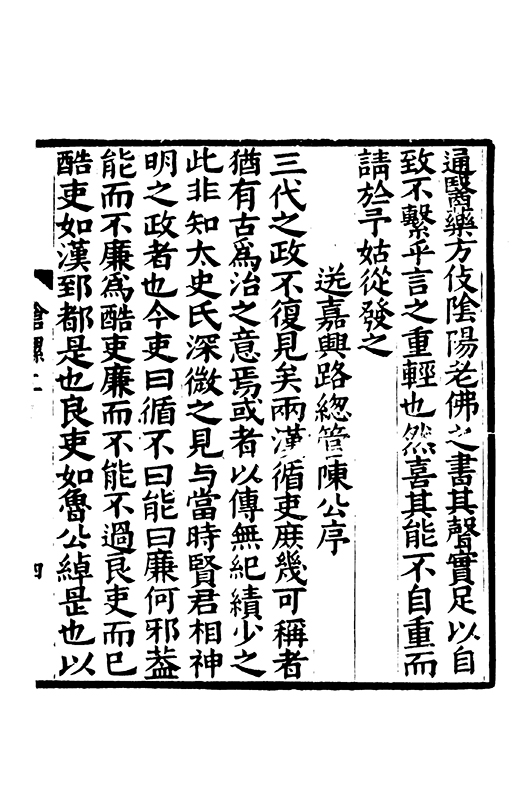 通醫藥方伎陰陽老佛之書其聲實足以自
致不繫乎言之重輕也然喜其能不自重而
請於予姑從發之
送嘉興路總管陳公序
三代之政不復見矣兩漢循吏庶幾可稱者
猶有古爲治之意焉或者以傳無紀績少之
此非知太史氏深微之見与當時賢君相神
明之政者也今吏曰循不曰能曰廉何邪葢
能而不廉爲酷吏廉而不能不過良吏而已
酷吏如漢郅都是也良吏如魯公綽是也以
滄螺二
四